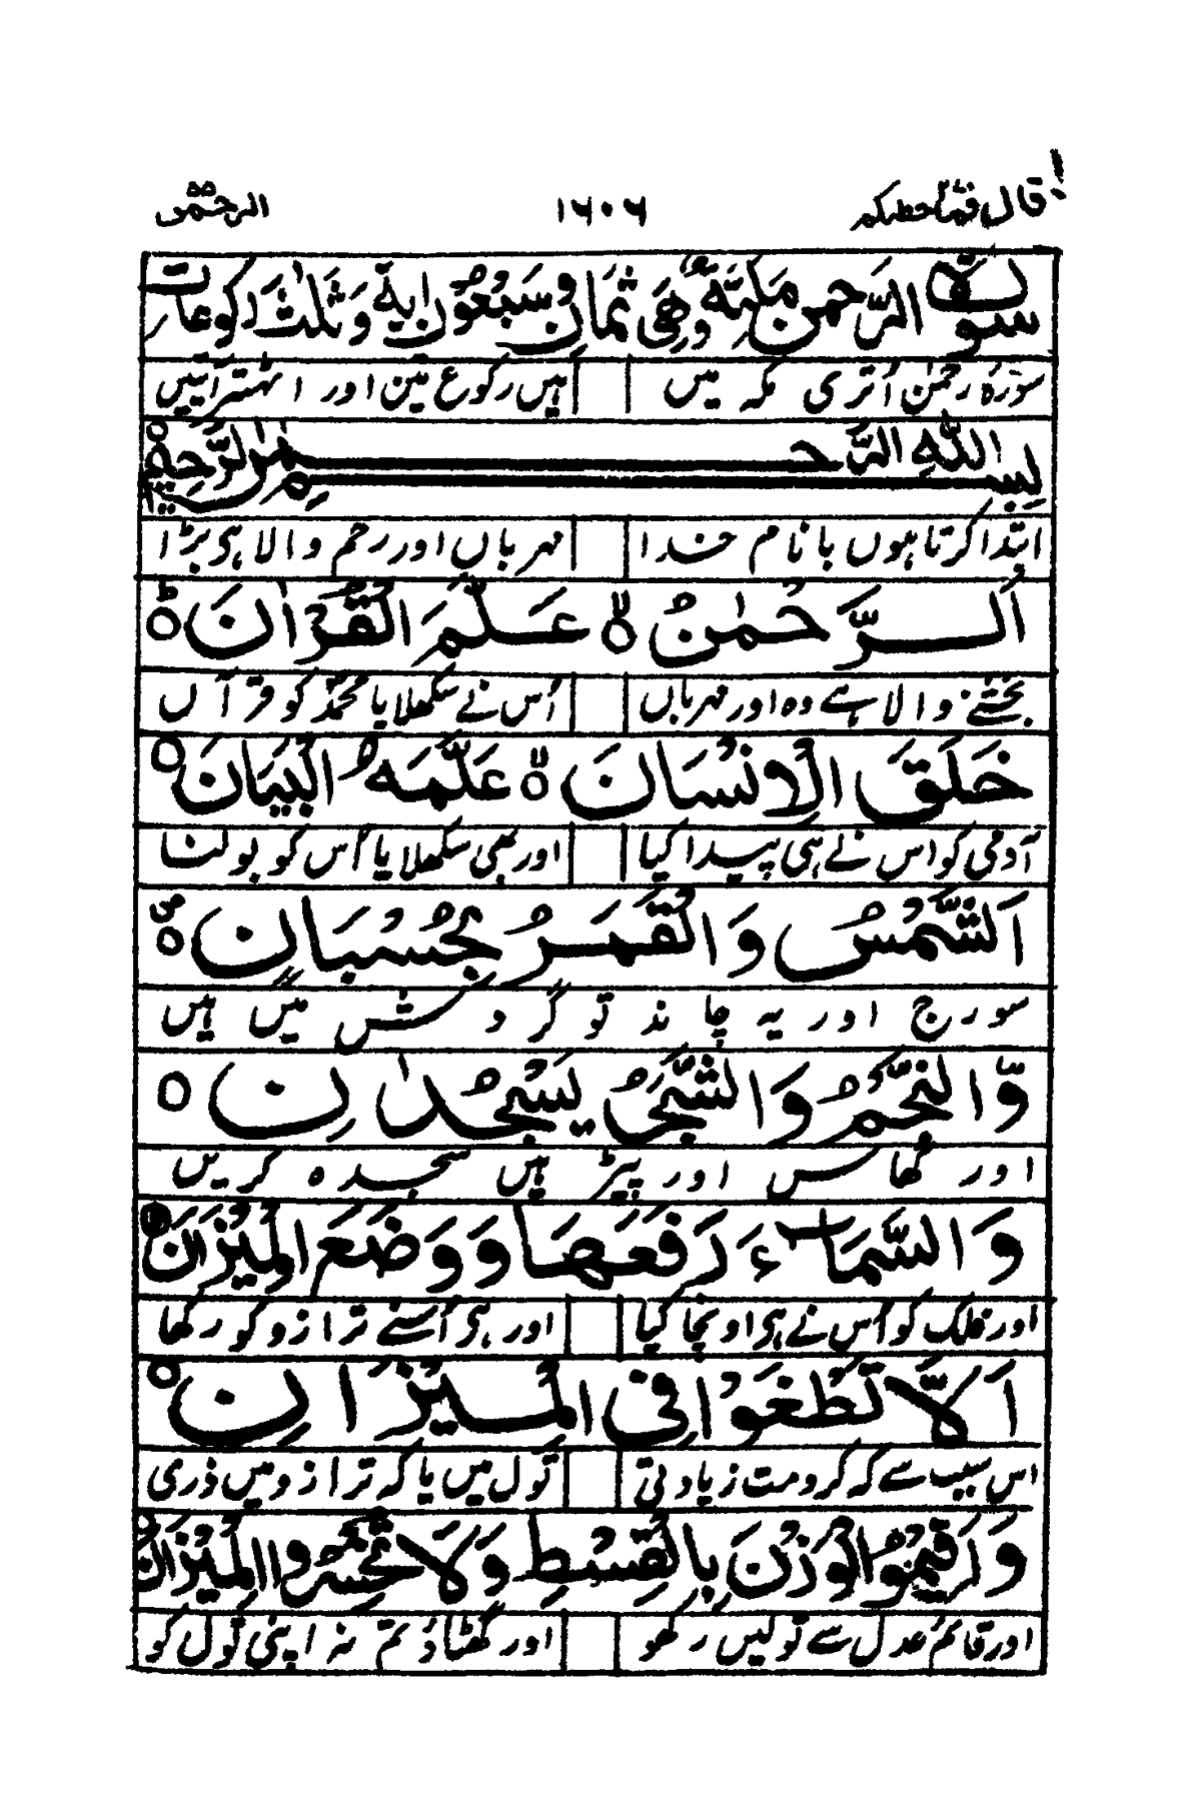 قال فما خطبکم ۱۶۰۶ الرحمٰن
سورة الرحمن مکیة وهی ثمان وسبعون اٰیة وثلٰث رکوعات
سورۃ رحمٰن اُتری مکہ میں ہیں رکوع تین اور اٹھتر آیتیں
بسم الله الرحمٰن الرحیم
ابتدا کرتا ہوں بانام خدا مہرباں اور رحم والا ہی بڑا
اَلرَّحْمٰنُ ۙ عَلَّمَ الْقُرْاٰنَ ؕ
بخشنے والا ہے وہ اور مہرباں اُس نے سکھلایا محمدؐ کو قرآں
خَلَقَ الْاِنْسَانَ ۙ عَلَّمَهُ الْبَیَانَ
آدمی کو اس نے ہی پیدا کیا اور بھی سکھلایا اُس کو بولنا
اَلشَّمْسُ وَالْقَمَرُ بِحُسْبَانٍ
سورج اور یہ چاند تو گردش میں ہیں
وَّالنَّجْمُ وَالشَّجَرُ یَسْجُدٰنِ
اور گھاس اور پیڑ ہیں سجدہ کریں
وَالسَّمَآءَ رَفَعَهَا وَوَضَعَ الْمِیْزَانَ
اور فلک کو اُس نے ہی اونچا کیا اور ہی اُسنے ترازو کو رکھا
اَلَّا تَطْغَوْا فِی الْمِیْزَانِ
اس سبب سے کہ کرو مت زیادتی تول میں یا کہ ترازو میں ذری
وَاَقِیْمُوا الْوَزْنَ بِالْقِسْطِ وَلَا تُخْسِرُوا الْمِیْزَانَ
اور قائم عدل سے تولیں رکھو اور گھٹاؤ تم نہ اپنی تول کو